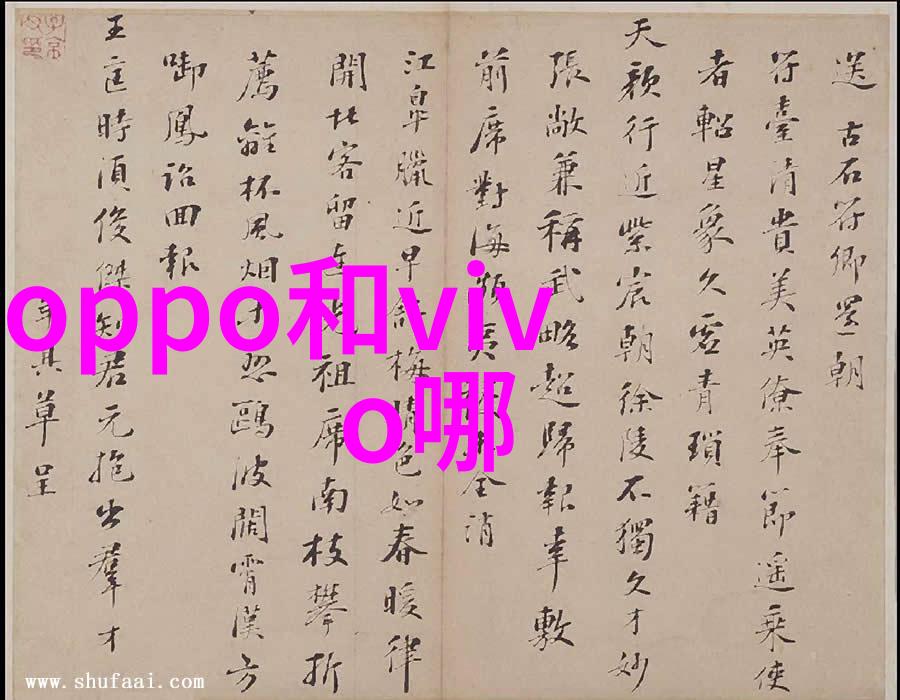 送 古石符卿還朝
符臺清貴美英僚奉節遥乘使
者軺星象久虛青瑣籍
天顔行近紫宸朝徐陵不獨文才妙
張敞兼稱武略超歸報幸敷
前席對海 全消
江皐臘近早 梅 色如春暖律
開北客留連 祖席南枝攀折
薦離杯風烟才忍鷗波闊霄漢方
啣鳳詔回報
王 時須俊傑知君元抱出羣才
其草呈
oppo和viv
o哪
www.shufaai.com